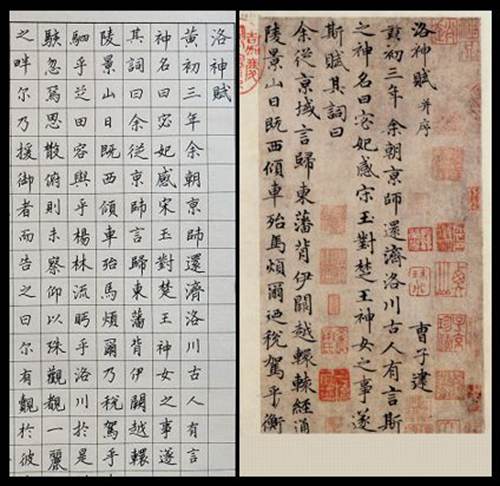 洛神賦
黄初三年余朝京師還濟洛川古人有言
之神名曰宓妃感宋玉對楚王神女之事
其詞曰余從京師言歸東藩背伊闕越轘
陵景山日既西傾車殆馬煩爾乃稅駕乎
駟乎芝田容與乎楊林流眄乎洛川於是
駭忽焉思散俯則未察仰以殊觀覩一麗
之畔尔乃援御者而告之曰尔有覿於彼
洛神賦 并序
曹子建
黄初三年余朝京師還濟洛川古人有言斯
之神名曰宓妃感宋玉對楚王神女之事遂
斯賦其詞曰
余從京域言歸東藩背伊闕越轘轅經通
陵景山日既西傾車殆馬煩爾迺稅駕乎衡